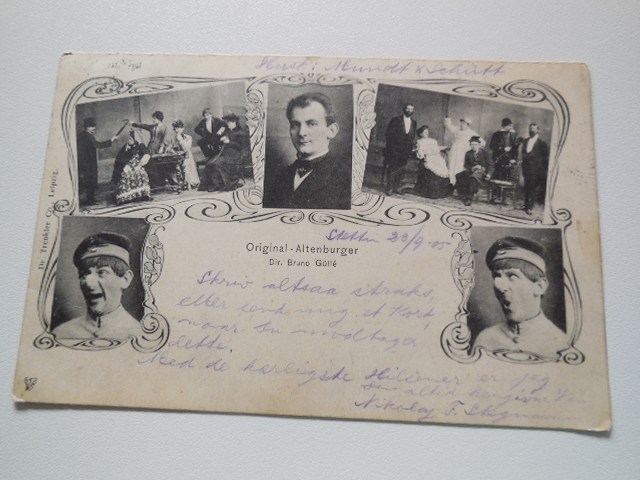 Husk: Mundt & Schütt
Dr. Trenkler Co., Leipzig.
Original-Altenburger
Dir. Bruno Güllé
Stettin 29/9-05
Skriv altsaa straks,
eller send mig et Kort,
naar Du modtager
dette.
Med de kærligste Hilsener er jeg
som altid hengivne Ven
Nikolaj F.